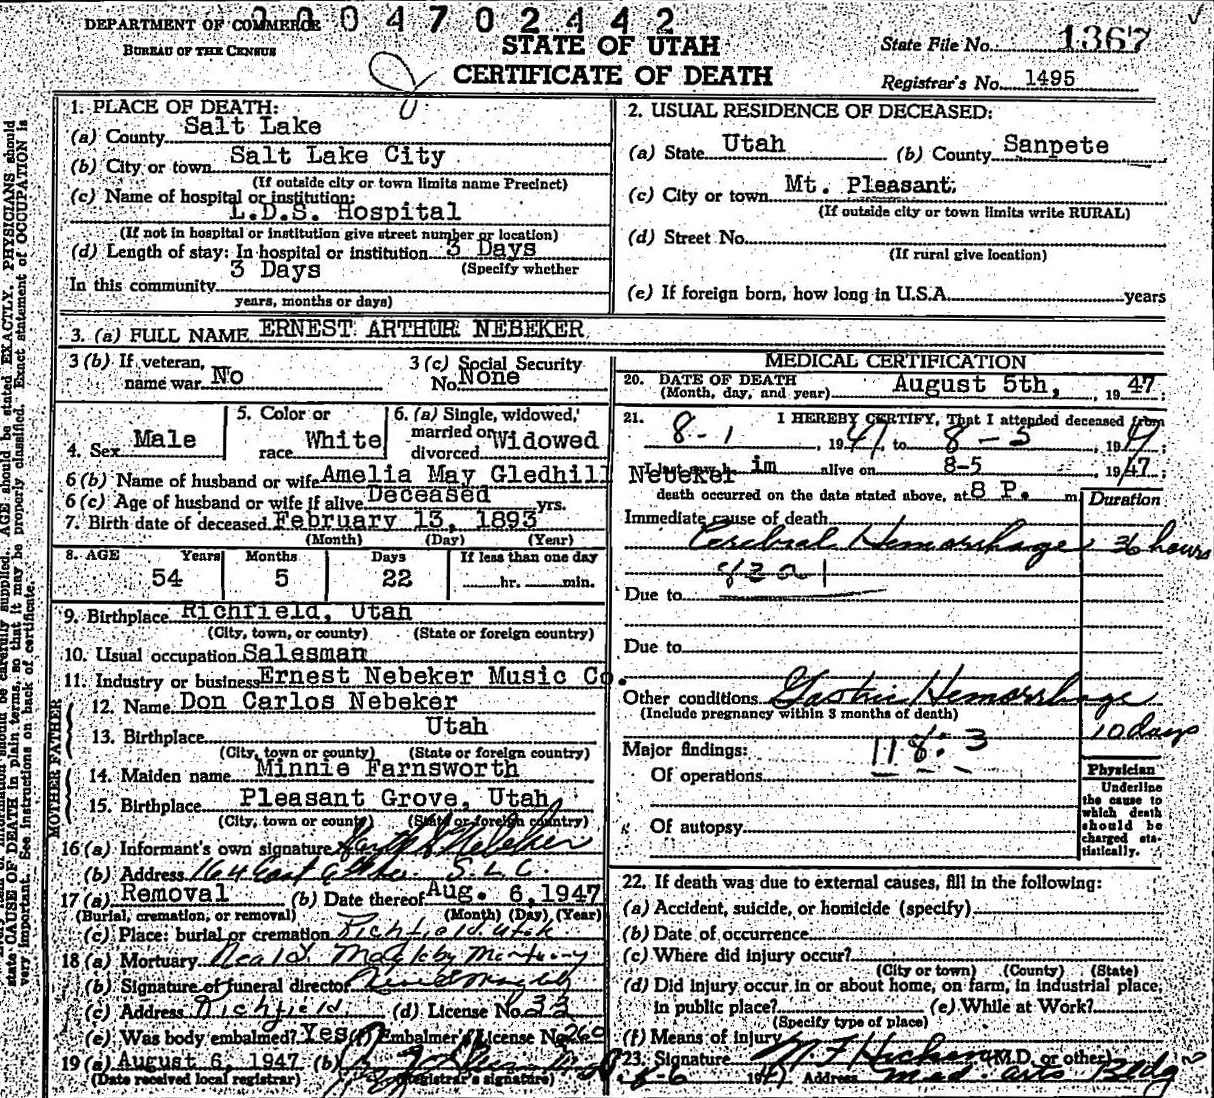 0004702442
DEPARTMENT OF COMMERCE
BUREAU OF THE CENSUS
STATE OF UTAH
CERTIFICATE OF DEATH
State File No. 1367
Registrar's No. 1495
1. PLACE OF DEATH:
(a) County Salt Lake
(b) City or town Salt Lake City
(If outside city or town limits name Precinct)
(c) Name of hospital or institution:
L.D.S. Hospital
(If not in hospital or institution give street number or location)
(d) Length of stay: In hospital or institution 3 Days
(Specify whether
In this community 3 Days
years, months or days)
2. USUAL RESIDENCE OF DECEASED:
(a) State Utah (b) County Sanpete
(c) City or town Mt. Pleasant
(If outside city or town limits write RURAL)
(d) Street No.
(If rural give location)
(e) If foreign born, how long in U.S.A. years
3. (a) FULL NAME ERNEST ARTHUR NEBEKER
3 (b) If veteran, name war No
3 (c) Social Security No. None
4. Sex Male
5. Color or race White
6. (a) Single, widowed, married or divorced Widowed
6 (b) Name of husband or wife Amelia May Gledhill Nebeker
6 (c) Age of husband or wife if alive Deceased yrs.
7. Birth date of deceased February 13, 1893
(Month) (Day) (Year)
8. AGE Years Months Days If less than one day
54 5 22 hr. min.
9. Birthplace Richfield, Utah
(City, town, or county) (State or foreign country)
10. Usual occupation Salesman
11. Industry or business Ernest Nebeker Music Co.
FATHER
12. Name Don Carlos Nebeker
13. Birthplace Utah
(City, town or county) (State or foreign country)
MOTHER
14. Maiden name Minnie Farnsworth
15. Birthplace Pleasant Grove, Utah
(City, town or county) (State or foreign country)
16 (a) Informant's own signature Nebeker
(b) Address 164 East S.L.C.
17 (a) Removal (b) Date thereof Aug. 6, 1947
(Burial, cremation, or removal) (Month) (Day) (Year)
(c) Place: burial or cremation Richfield, Utah
18 (a) Mortuary Mortuary
(b) Signature of funeral director
(c) Address Richfield (d) License No. 33
(e) Was body embalmed? Yes (f) Embalmer's License No. 260
19 (a) August 6, 1947 (b)
(Date received local registrar) (Registrar's signature)
MEDICAL CERTIFICATION
20. DATE OF DEATH August 5th, 1947;
(Month, day, and year)
21. I HEREBY CERTIFY, That I attended deceased from
8-1, 1947, to 8-5, 1947;
I last saw him alive on 8-5, 1947;
death occurred on the date stated above, at 8 P. m.
Duration
Immediate cause of death
Cerebral Hemorrhage 36 hours
Due to
Due to
Other conditions Gastric Hemorrhage
(Include pregnancy within 3 months of death) 10 days
Major findings: 118:3
Of operations
Of autopsy
Physician
Underline the cause to which death should be charged statistically.
22. If death was due to external causes, fill in the following:
(a) Accident, suicide, or homicide (specify)
(b) Date of occurrence
(c) Where did injury occur?
(City or town) (County) (State)
(d) Did injury occur in or about home, on farm, in industrial place, in public place? (e) While at Work?
(Specify type of place)
(f) Means of injury
23. Signature (M.D. or other)
8-6 1947 Address Med. Arts Bldg